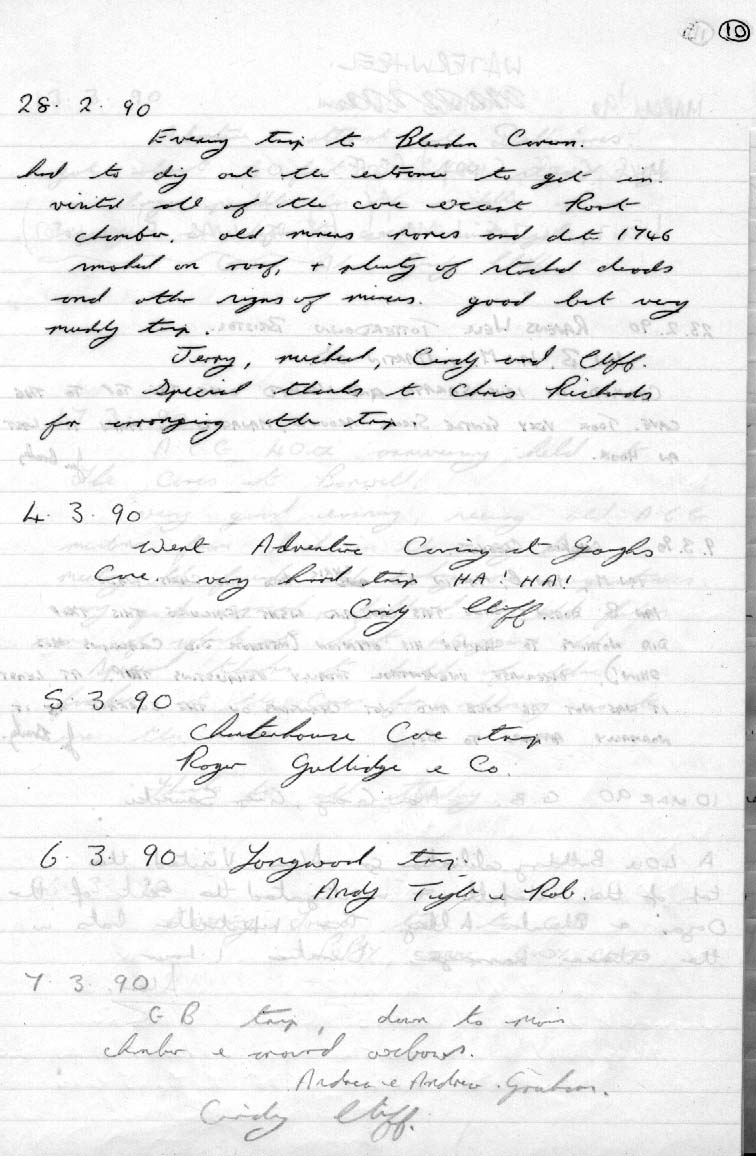 10
28. 2. 90
Evening trip to Bleadon Cavern.
had to dig out the entrance to get in.
visited all of the cave except Root
chamber. old miners names and date 1746
smoked on roof, + plenty of stacked deads
and other signs of miners. good but very
muddy trip.
Jerry, Michael, Cindy and Cliff.
Special thanks to Chris Richards
for arranging the trip.
4. 3. 90
Went Adventure Caving at Goughs
Cave. very hard trip HA! HA!
Cindy Cliff.
5. 3. 90
Charterhouse Cave trip
Roger Gullidge & Co.
6. 3. 90 Longwood trip.
Andy & Rob.
7. 3. 90
G B trip, down to main
chamber & around oxbows.
Andrea & Andrew. Graham.
Cindy Cliff.